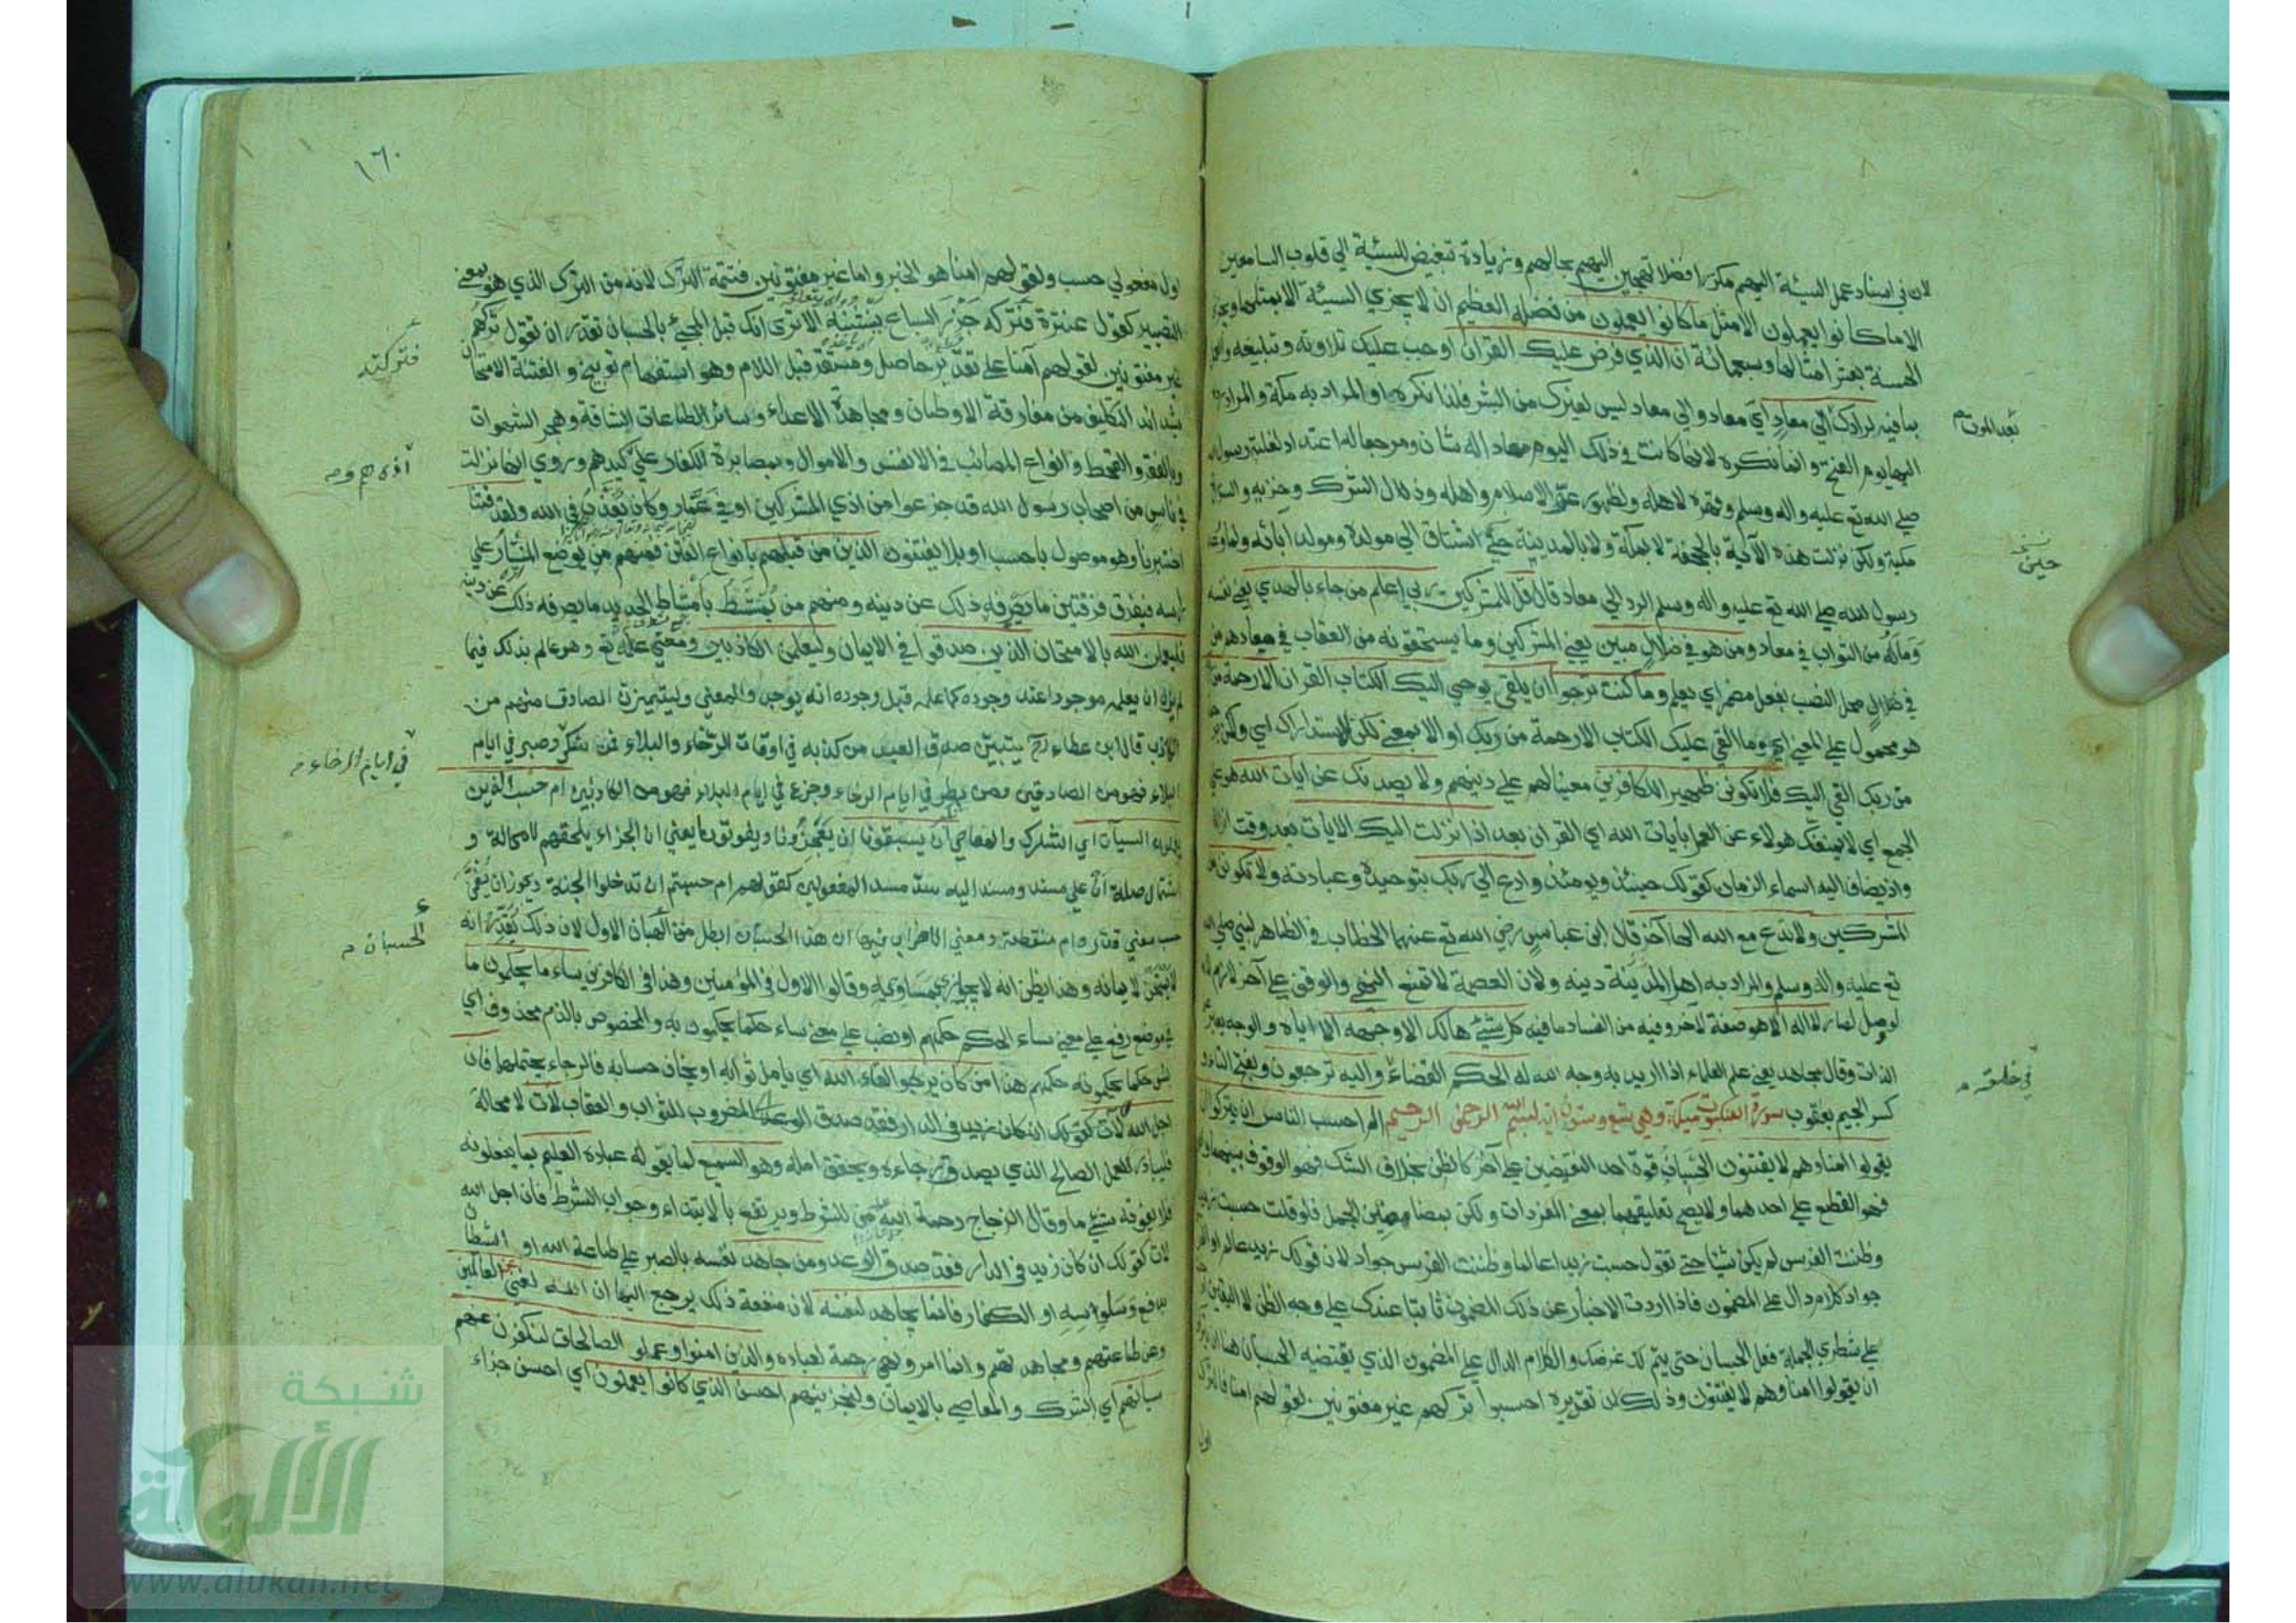 لان فى اسناد عمل السيئة اليهم مكررا فضلا تهجين اليهم بحالهم وزيادة تبغيض للسيئة الي قلوب السامعين
الا ما كانوا يعملون الا مثل ما كانوا يعملون من فضله العظيم ان لا يجزي السيئة الا بمثلها ويجزي
الحسنة بعشر امثالها وسبعمائة ان الذي فرض عليك القران اوجب عليك تلاوته وتبليغه والعمل
بما فيه لرادك الي معاد اي معاد والي معاد ليس لغيرك من البشر فلذا نكره او المراد به مكة والمراد
بعد الموت م
اليها يوم الفتح وانما نكره لانها كانت في ذلك اليوم معاد اله شان ومرجعا له اعتداد لغلبة رسول الله
صلي الله تع عليه واله وسلم وقهره لاهلها ولظهور عز الاسلام واهله وذل الشرك وحزبه والسورة
مكية ولكن نزلت هذه الآية بالجحفة لا بمكة ولا بالمدينة حتي اشتاق الي مولده ومولد ابائه
حين
رسول الله صلي الله تع عليه واله وسلم الرد الي معاد قال قل للمشركين ربي اعلم من جاء بالهدي يعني نفسه
وماله من الثواب في معاد ومن هو في ضلال مبين يعني المشركين وما يستحقونه من العقاب في معادهم من
في ضلال محل النصب بفعل مضمر اي يعلم وما كنت ترجوا ان يلقي يوحي اليك الكتاب القران الا رحمة من
هو محمول علي المعني اي وما القي عليك الكتاب الا رحمة من ربك او الا بمعني لكن للاستدراك اي ولكن
من ربك القي اليك فلا تكونن ظهيرا للكافرين معينا لهم علي دينهم ولا يصدنك عن ايات الله هو علي
الجمع اي لا يمنعنك هولاء عن العمل بايات الله اي القران بعد اذ انزلت اليك الايات بعد وقت
واذ يضاف اليه اسماء الزمان كقولك حينئذ ويومئذ وادع الي ربك بتوحيده وعبادته ولا تكونن من
المشركين ولا تدع مع الله الها آخر قال ابن عباس رضي الله تع عنهما الخطاب في الظاهر لنبي صلي الله
تع عليه واله وسلم والمراد به اهل دينه ولان العصمة لا تمنع النهي والوقف علي آخر لازم
لو وصل لصار لا اله الا هو صفة لآخر وفيه من الفساد ما فيه كل شئ هالك الا وجهه الا اياه والوجه يعبر
الذات وقال مجاهد يعني علم العلماء اذا اريد به وجه الله له الحكم القضاء واليه ترجعون وبفتح التاء و
في خلقه م
كسر الجيم يعقوب سورة العنكبوت مكية وهي تسع وستون اية بسم الله الرحمن الرحيم الم احسب الناس ان يتركوا ان
يقولوا امنا وهم لا يفتنون الحسبان قوة احد النقيضين علي آخر كالظن بخلاف الشك فهو الوقوف بينهما
فهو القطع علي احدهما ولا يصح تعليقهما بمعني المفردات ولكن بمضامين الجمل فلو قلت حسبت زيد
وظننت الفرس لم يكن شيئا حتي تقول حسبت زيدا عالما وظننت الفرس جواد لان قولك زيد عالم او الفرس
جواد كلام دال علي المضمون فاذا اردت الاخبار عن ذلك المضمون ثابتا عندك علي وجه الظن لا اليقين
علي شطري الجملة فعل الحسبان حتى يتم لك غرضك والكلام الدال علي المضمون الذي يقتضيه الحسبان هنا ان
ان يقولوا امنا وهم لا يفتنون وذلك لان تقديره احسبوا تركهم غير مفتونين لقولهم امنا فالترك
اول
١٦٠
اول مفعولي حسب ولقولهم امنا هو الخبر واما غير مفتونين فتتمة الترك لانه من الترك الذي هو بمعني
التصيير كقول عنترة فتركه جزر السباع ينشنه الا تري انك قبل المجئ بالحسبان تقدر ان تقول تركهم
فتركته
غير مفتونين لقولهم آمنا علي تقدير حاصل ومستقر قبل اللام وهو استفهام توبيخ والفتنة الامتحان
بشدائد التكليف من مفارقة الاوطان ومجاهدة الاعداء وسائر الطاعات الشاقة وهجر الشهوات
وبالفقر والقحط وانواع المصائب في الانفس والاموال وبمصابرة الكفار علي كيدهم وروي انها نزلت
في ناس من اصحاب رسول الله قد جزعوا من اذي المشركين او في عمار وكان يعذب في الله ولقد فتنا
اختبرنا وهو موصول باحسب او بلا يفتنون الذين من قبلهم بانواع الفتن فمنهم من يوضع المنشار علي
راسه فيفرق فرقتين ما يصرفه ذلك عن دينه ومنهم من يمشط بامشاط الحديد ما يصرفه ذلك عن دينه
فليعلمن الله بالامتحان الذين صدقوا في الايمان وليعلمن الكاذبين ومعني علمه تع وهو عالم بذلك فيما
لم يزل ان يعلمه موجودا عند وجوده كما علمه قبل وجوده انه يوجد والمعني وليتميزن الصادق منهم من
الكاذب قال ابن عطاء رح يتبين صدق العبد من كذبه في اوقات الرخاء والبلاء فمن شكر وصبر في ايام
في ايام الرخاء م
البلاء فهو من الصادقين ومن بطر في ايام الرخاء وجزع في ايام البلاء فهو من الكاذبين ام حسب الذين
يعملون السيآت اي الشرك والمعاصي ان يسبقونا ان يعجزونا ويفوتونا يعني ان الجزاء يلحقهم لا محالة و
اشتمال صلة ان علي مسند ومسند اليه سد مسد المفعولين كقولهم ام حسبتم ان تدخلوا الجنة ويجوز ان يضمن
حسب معني قدر وام منقطعة ومعني الاضراب فيها ان هذا الحسبان ابطل من الحسبان الاول لان ذلك يقدر انه
الحسبان م
لا يمتحن لايمانه وهذا يظن انه لا يجازي بمساويه وقالوا الاول في المؤمنين وهذا في الكافرين ساء ما يحكمون ما
في موضع رفع علي معني ساء الحكم حكمهم او نصب علي معني ساء حكما يحكمون به والمخصوص بالذم محذوف اي
بئس حكما يحكمونه حكمهم هذا من كان يرجوا لقاء الله اي يامل ثوابه او يخاف حسابه فالرجاء يحتملهما فان
اجل الله لآت كقولك ان كان زيد في الدار فقد صدق الوعد المضروب للثواب والعقاب لآت لا محالة
فليبادر للعمل الصالح الذي يصدق رجاءه ويحقق امله وهو السميع لما يقوله عباده العليم بما يفعلونه
فلا يفوته شئ ما وقال الزجاج رحمة الله عليه من للشرط ويرتفع بالابتداء وجواب الشرط فان اجل الله
لات كقولك ان كان زيد فى الدار فقد صدق الوعد ومن جاهد نفسه بالصبر علي طاعة الله او الشيطان
بدفع وساوسه او الكفار فانما يجاهد لنفسه لان منفعة ذلك يرجع اليها ان الله لغني عن العالمين
وعن طاعتهم ومجاهدتهم وانما امر ونهي رحمة لعباده والذين امنوا وعملوا الصالحات لنكفرن عنهم
سياتهم اي الشرك والمعاصي بالايمان ولنجزينهم احسن الذي كانوا يعملون اي احسن جزاء
شبكة
الألوكة
www.alukah.net